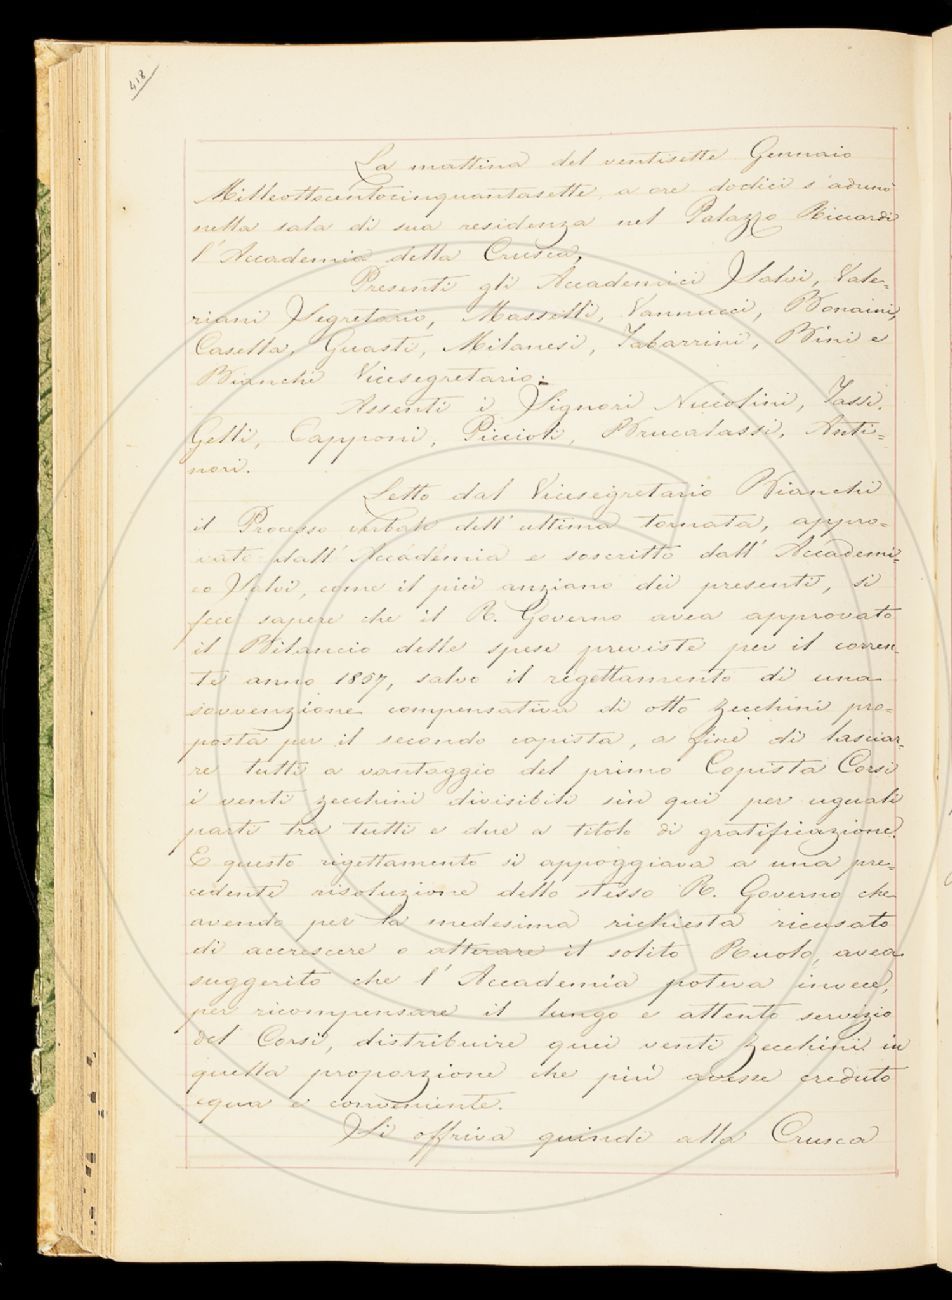 418
La mattina del ventisette Gennaio
Milleottocentocinquantasette, a ore dodici s'adunò
nella sala di sua residenza nel Palazzo Riccardi
l'Accademia della Crusca,
Presenti gli Accademici Salvi, Vale=
riani Segretario, Masselli, Vannucci, Bonaini,
Casella, Guasti, Milanesi, Tabarrini, Bini e
Bianchi Vicesegretario:
Assenti i Signori Niccolini, Tassi,
Gelli, Capponi, Piccioli, Brucalassi, Anti=
nori.
Letto dal Vicesegretario Bianchi
il Processo verbale dell'ultima tornata, appro=
vato dall'Accademia e soscritto dall'Accademi=
co Salvi, come il più anziano dei presenti, si
fece sapere che il R. Governo avea approvato
il Bilancio delle spese previste per il corren=
te anno 1857, salvo il rigettamento di una
sovvenzione compensativa di otto zecchini pro=
posta per il secondo copista, a fine di lascia=
re tutti a vantaggio del primo Copista Corsi
i venti zecchini divisibili sin qui per uguali
parti tra tutti e due a titolo di gratificazione.
E questo rigettamento si appoggiava a una pre=
cedente risoluzione dello stesso R. Governo che
avendo per la medesima richiesta ricusato
di accrescere o alterare il solito Ruolo, avea
suggerito che l'Accademia poteva invece,
per ricompensare il lungo e attento servizio
del Corsi, distribuire quei venti zecchini in
quella proporzione che più avesse creduto
equa e conveniente.
Si offriva quindi alla Crusca